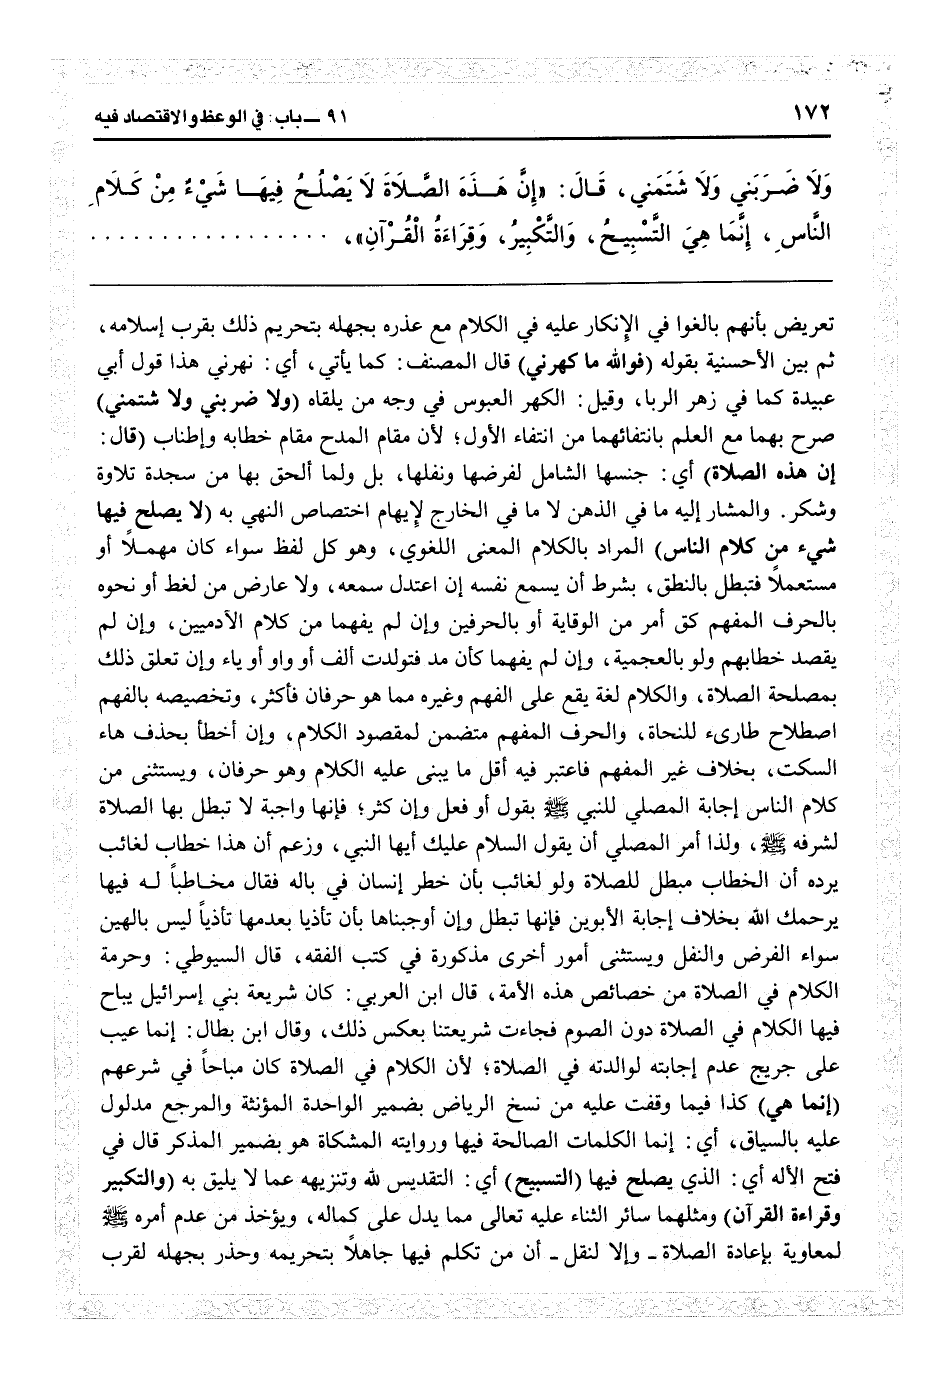 ١٧٢
٩١ ــ باب: في الوعظ والاقتصاد فيه
وَلَا ضَـرَبَني وَلَا شَتَمَني، قَـالَ: «إِنَّ هَـذَهَ الصَّـلَاةَ لَا يَصْلُـحُ فِيهَـا شَيْءٌ مِنْ كَـلَامِ
النَّاسِ، إِنَّمَا هِيَ التَّسْبِيـحُ، وَالتَّكْبِيرُ، وَقِرَاءَةُ الْقُـرْآنِ»، . . . . . . . . . . . . . . . . .
تعريض بأنهم بالغوا في الإنكار عليه في الكلام مع عذره بجهله بتحريم ذلك بقرب إسلامه،
ثم بين الأحسنية بقوله (فوالله ما كهرني) قال المصنف: كما يأتي، أي: نهرني هذا قول أبي
عبيدة كما في زهر الربا، وقيل: الكهر العبوس في وجه من يلقاه (ولا ضربني ولا شتمني)
صرح بهما مع العلم بانتفائهما من انتفاء الأول؛ لأن مقام المدح مقام خطابه وإطناب (قال:
إن هذه الصلاة) أي: جنسها الشامل لفرضها ونفلها، بل ولما ألحق بها من سجدة تلاوة
وشكر. والمشار إليه ما في الذهن لا ما في الخارج لإيهام اختصاص النهي به (لا يصلح فيها
شيء من كلام الناس) المراد بالكلام المعنى اللغوي، وهو كل لفظ سواء كان مهمـلاً أو
مستعملاً فتبطل بالنطق، بشرط أن يسمع نفسه إن اعتدل سمعه، ولا عارض من لغط أو نحوه
بالحرف المفهم كق أمر من الوقاية أو بالحرفين وإن لم يفهما من كلام الآدميين، وإن لم
يقصد خطابهم ولو بالعجمية، وإن لم يفهما كأن مد فتولدت ألف أو واو أو ياء وإن تعلق ذلك
بمصلحة الصلاة، والكلام لغة يقع على الفهم وغيره مما هو حرفان فأكثر، وتخصيصه بالفهم
اصطلاح طارىء للنحاة، والحرف المفهم متضمن لمقصود الكلام، وإن أخطأ بحذف هاء
السكت، بخلاف غير المفهم فاعتبر فيه أقل ما يبنى عليه الكلام وهو حرفان، ويستثنى من
كلام الناس إجابة المصلي للنبي ﷺ بقول أو فعل وإن كثر؛ فإنها واجبة لا تبطل بها الصلاة
لشرفه ﷺ، ولذا أمر المصلي أن يقول السلام عليك أيها النبي، وزعم أن هذا خطاب لغائب
يرده أن الخطاب مبطل للصلاة ولو لغائب بأن خطر إنسان في باله فقال مخـاطبـاً لـه فيها
يرحمك الله بخلاف إجابة الأبوين فإنها تبطل وإن أوجبناها بأن تأذيا بعدمها تأذياً ليس بالهين
سواء الفرض والنفل ويستثنى أمور أخرى مذكورة في كتب الفقه، قال السيوطي: وحرمة
الكلام في الصلاة من خصائص هذه الأمة، قال ابن العربي: كان شريعة بني إسرائيل يباح
فيها الكلام في الصلاة دون الصوم فجاءت شريعتنا بعكس ذلك، وقال ابن بطال: إنما عيب
على جريج عدم إجابته لوالدته في الصلاة؛ لأن الكلام في الصلاة كان مباحاً في شرعهم
(إنما هي) كذا فيما وقفت عليه من نسخ الرياض بضمير الواحدة المؤنثة والمرجع مدلول
عليه بالسياق، أي: إنما الكلمات الصالحة فيها وروايته المشكاة هو بضمير المذكر قال في
فتح الأله أي: الذي يصلح فيها (التسبيح) أي: التقديس لله وتنزيهه عما لا يليق به (والتكبير
وقراءة القرآن) ومثلهما سائر الثناء عليه تعالى مما يدل على كماله، ويؤخذ من عدم أمره ﷺ
لمعاوية بإعادة الصلاة ـ وإلا لنقل ـ أن من تكلم فيها جاهلاً بتحريمه وحذر بجهله لقرب